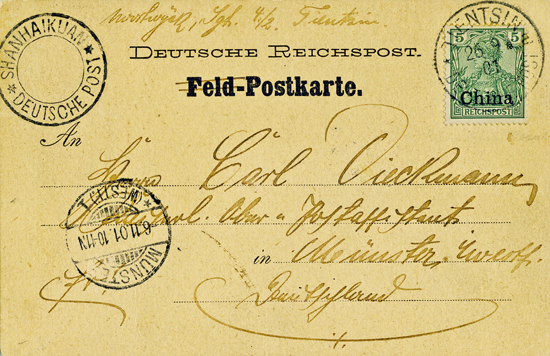 Tientsin
DEUTSCHE REICHSPOST.
Feld-Postkarte.
SHANHAIKUAN
* DEUTSCHE POST *
TIENTSIN
26 9
01
5 5
China
REICHSPOST
An
Herrn Carl Dieckmann
Ober- u Postassistent
in Münster, Westf.
Deutschland
MÜNSTER
6.11.01.10-11N
* (WESTF.) 1